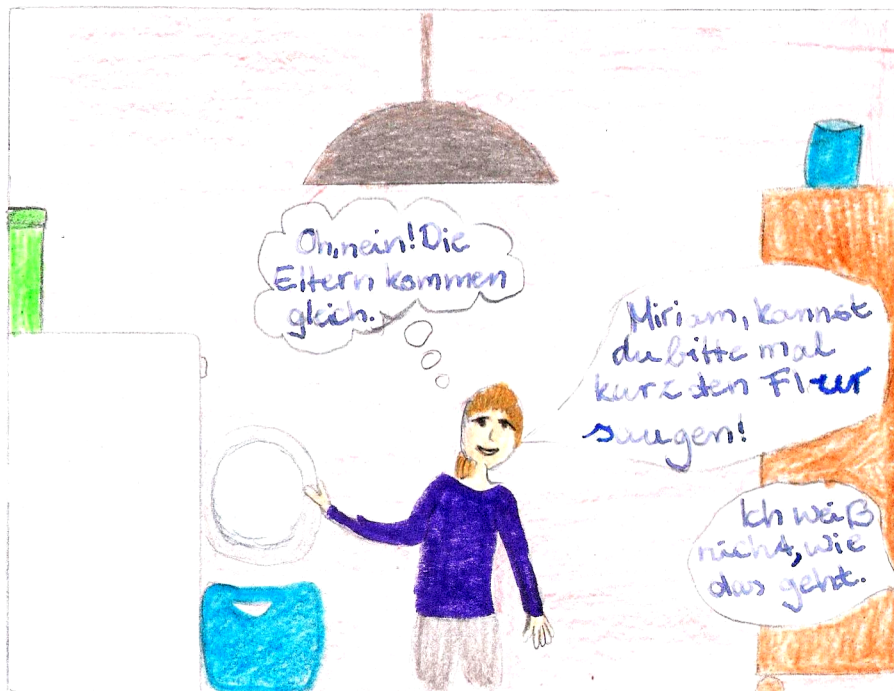 Oh,nein! Die
Eltern kommen
gleich.
Miriam, kannst
du bitte mal
kurz den Flur
saugen!
Ich weiß
nicht, wie
das geht.